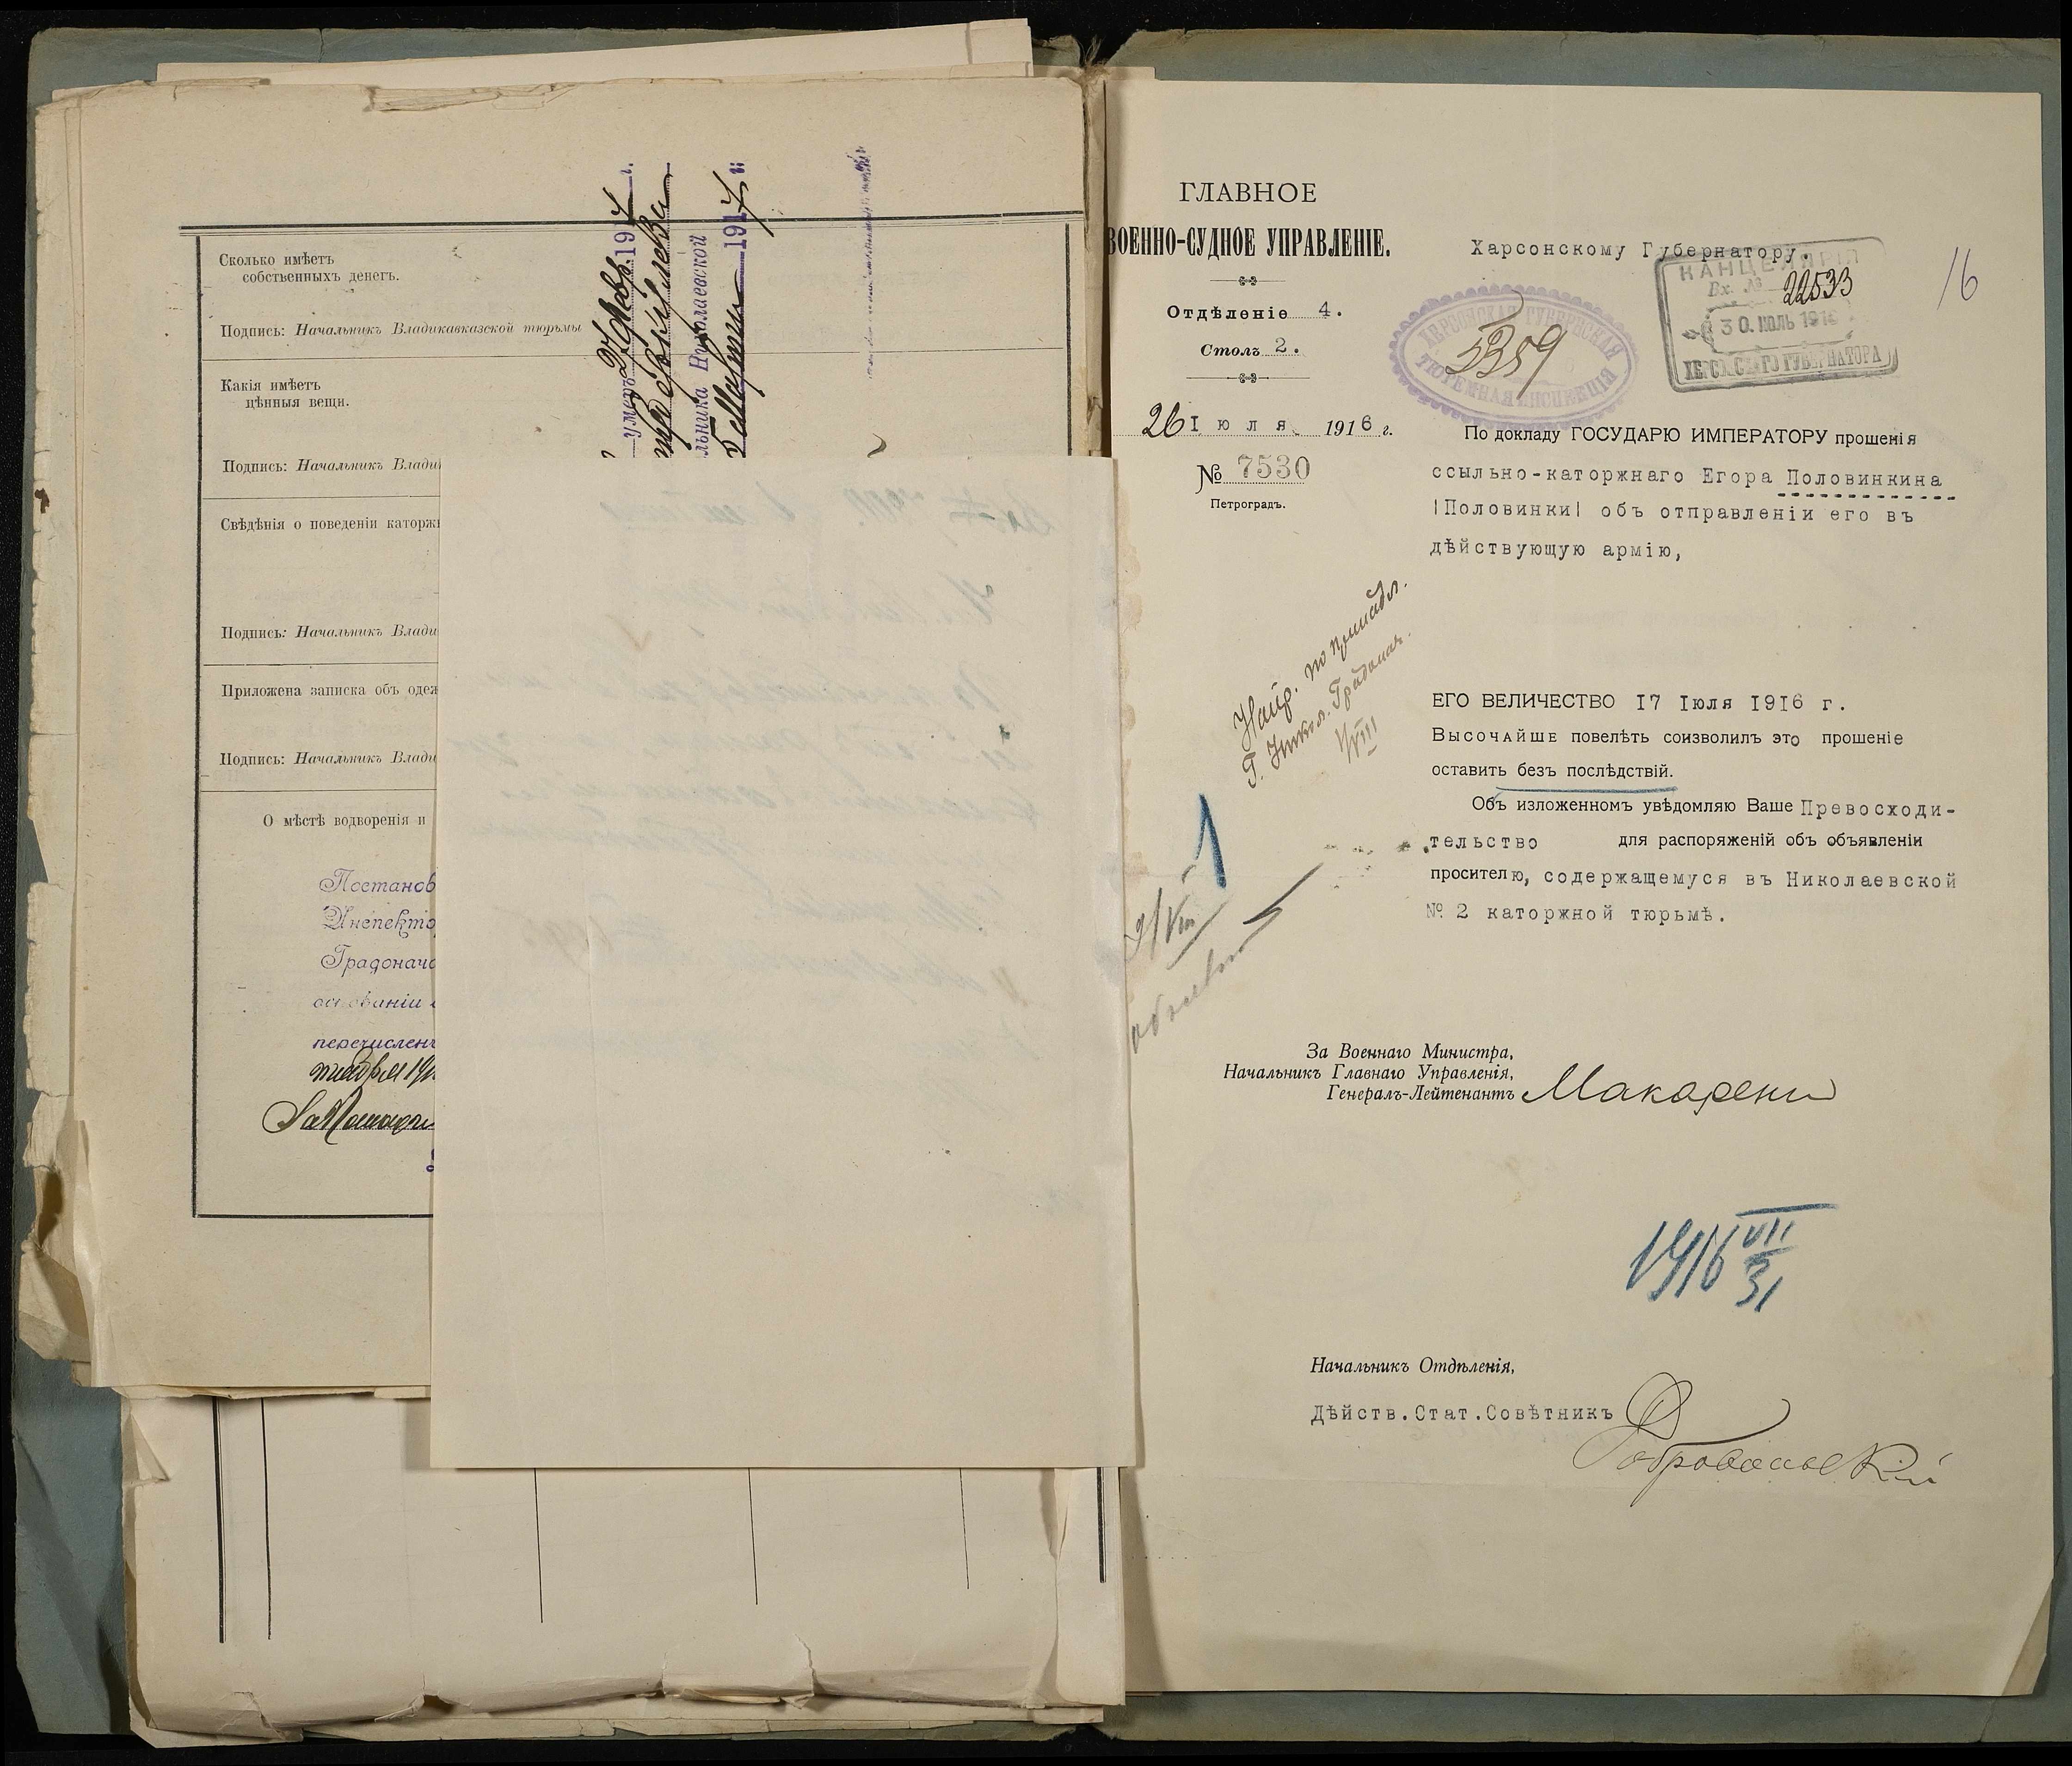 Сколько имѣетъ
собственныхъ денегъ.
Подпись: Начальникъ Владикавказской тюрьмы
Какія имѣетъ
цѣнныя вещи.
Подпись: Начальникъ Влади
Свѣдѣнія о поведеніи каторж
Подпись: Начальникъ Влади
Приложена записка объ одеж
Подпись: Начальникъ Влади
О мѣстѣ водворенія и
Постанов
Инспекто
Градонача
основаніи
перечислен
умеръ 27 февр. 1917 г.
льника Николаевской
1917
ГЛАВНОЕ
ВОЕННО-СУДНОЕ УПРАВЛЕНІЕ.
Отдѣленіе 4.
Столъ 2.
26 Іюля 1916 г.
№ 7530
Петроградъ.
Харсонскому Губернатору.
16
КАНЦЕЛЯРІЯ
Вх. № 22533
30. ИЮЛЬ 1916
ХЕРСОНСКАГО ГУБЕРНАТОРА
ХЕРСОНСКАЯ ГУБЕРНСКАЯ
5359
ТЮРЕМНАЯ ИНСПЕКЦІЯ
По докладу ГОСУДАРЮ ИМПЕРАТОРУ прошенія
ссыльно-каторжнаго Егора Половинкина
|Половинки| объ отправленіи его въ
дѣйствующую армію,
ЕГО ВЕЛИЧЕСТВО 17 Іюля 1916 г.
Высочайше повелѣть соизволилъ это прошеніе
оставить безъ послѣдствій.
Объ изложенномъ увѣдомляю Ваше Превосходи-
тельство для распоряженій объ объявленіи
просителю, содержащемуся въ Николаевской
№ 2 каторжной тюрьмѣ.
Напр. по принадл.
Г. Никол. Градонач.
VIII
2/VIII
За Военнаго Министра,
Начальникъ Главнаго Управленія,
Генералъ-Лейтенантъ Макаренко
1916 VII
31
Начальникъ Отдѣленія,
Дѣйств.Стат.Совѣтникъ
Добровольскій